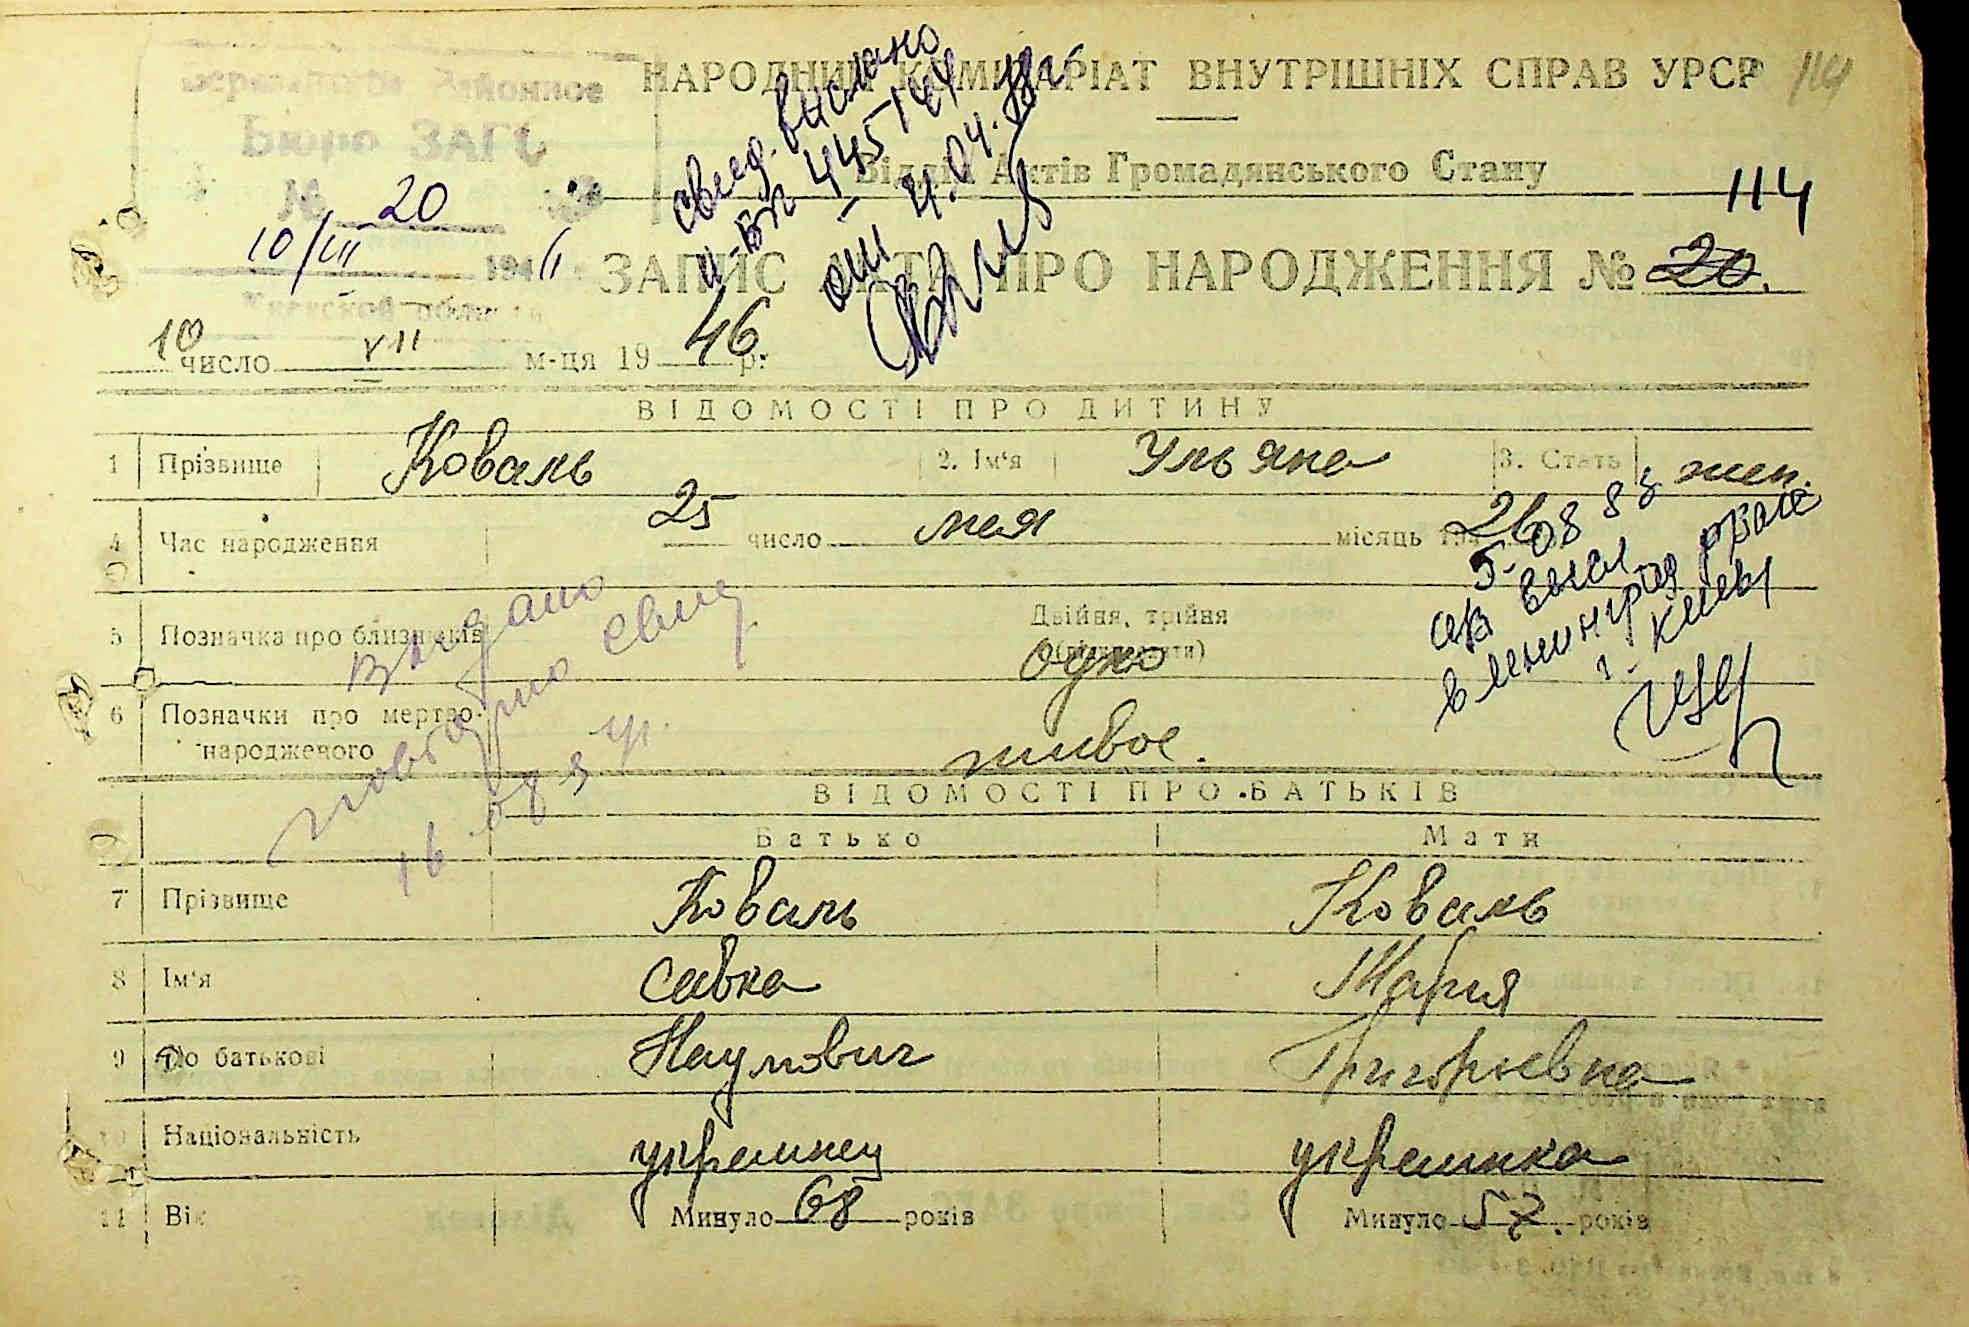 НАРОДНИЙ КОМІСАРІАТ ВНУТРІШНІХ СПРАВ УРСР 114
Районное
Бюро ЗАГС
№ 20
10/VII 1946
Киевской области
Відділ Актів Громадянського Стану
114
ЗАПИС АКТА ПРО НАРОДЖЕННЯ № 20.
свид. выслано
445144
11.04.
10 число VII м-ця 1946 р.
ВІДОМОСТІ ПРО ДИТИНУ
1 Прізвище Коваль 2. Ім'я Ульяна 3. Стать жен.
4 Час народження 25 число мая місяць 26
5-08 83
выл
в Ленинград
г. Киев
5 Позначка про близнюків Двійня, трійня
одно
Выдано
повторно свид.
16 08
6 Позначки про мертво-
народженого живое.
ВІДОМОСТІ ПРО БАТЬКІВ
Батько Мати
7 Прізвище Коваль Коваль
8 Ім'я Савка Мария
9 По батькові Наумович Григорьевна
10 Національність украинец украинка
11 Вік Минуло 68 років Минуло 57 років